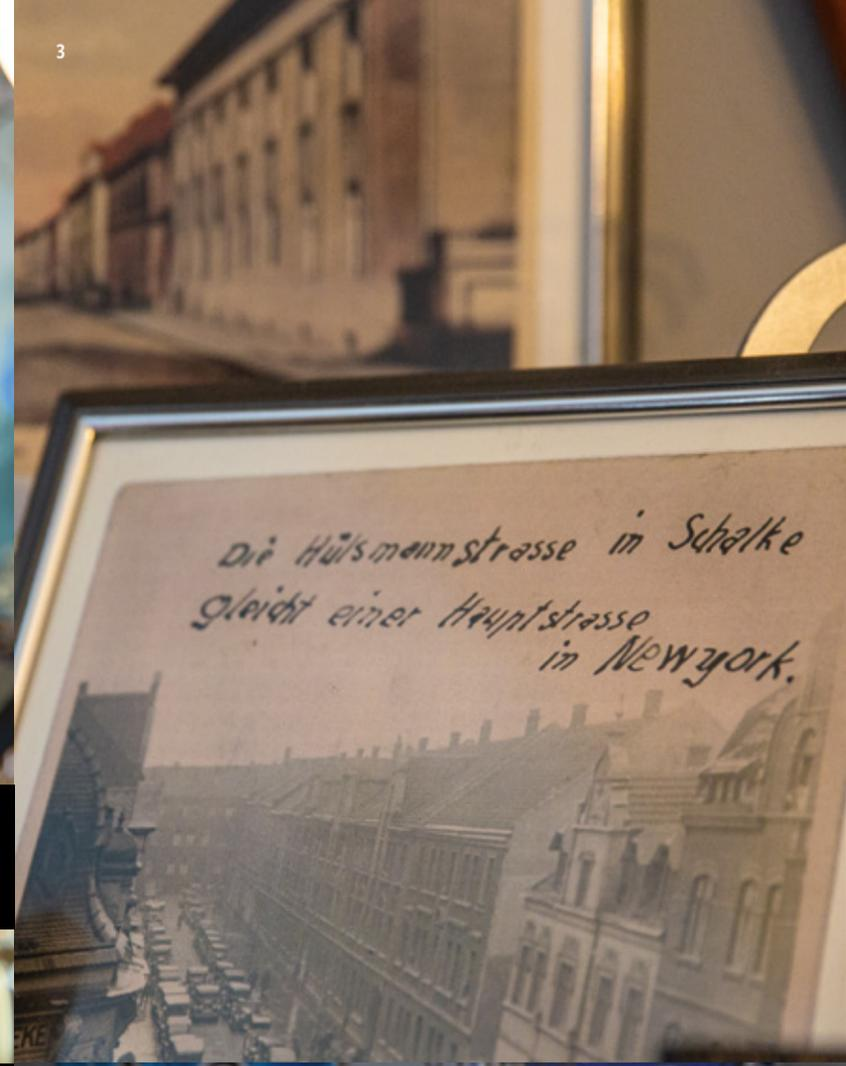 3
Die Hülsmannstrasse in Schalke
gleicht einer Hauptstrasse
in Newyork.
EKE